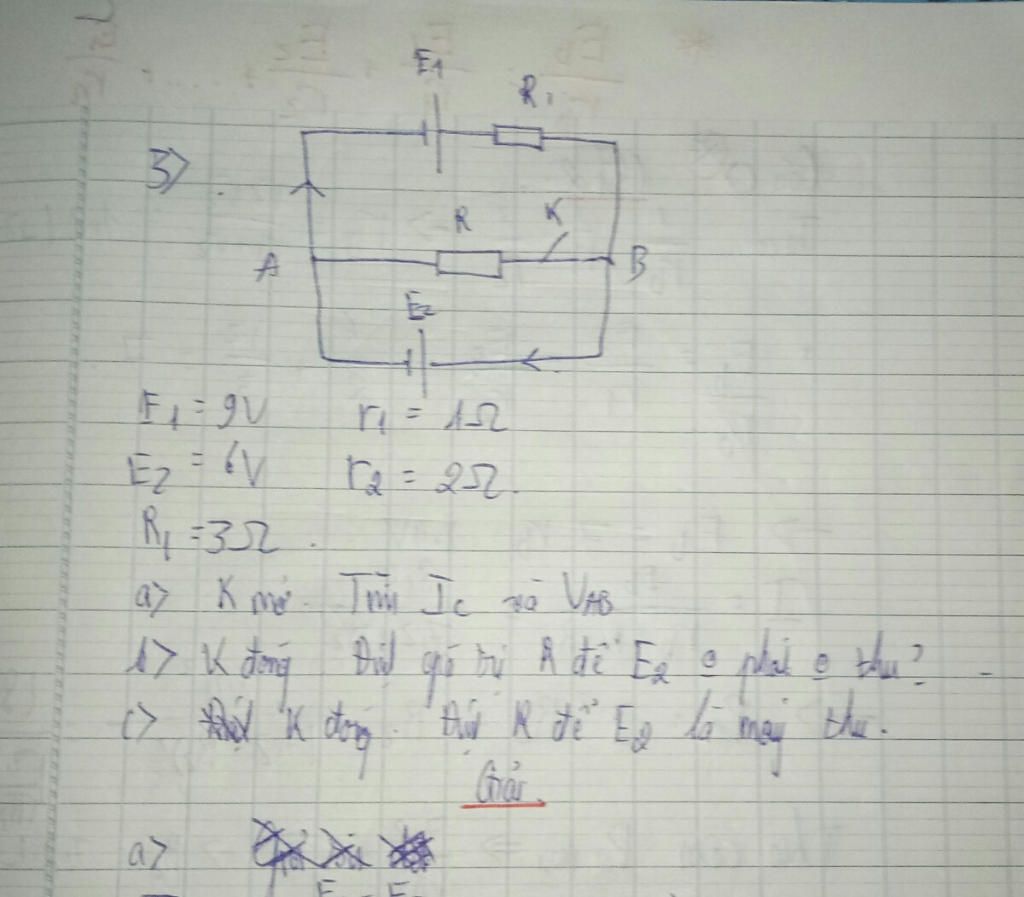 E1
R1
3>
R
K
A
B
E2
E1 = 9V r1 = 1Ω
E2 = 6V r2 = 2Ω.
R1 = 3Ω.
a> K mở. Tìm Ic và VAB
b> K đóng Định giá trị R để E2 o phát o thu?
c> K đóng. Định R để E2 là máy thu.
Giải.
a>